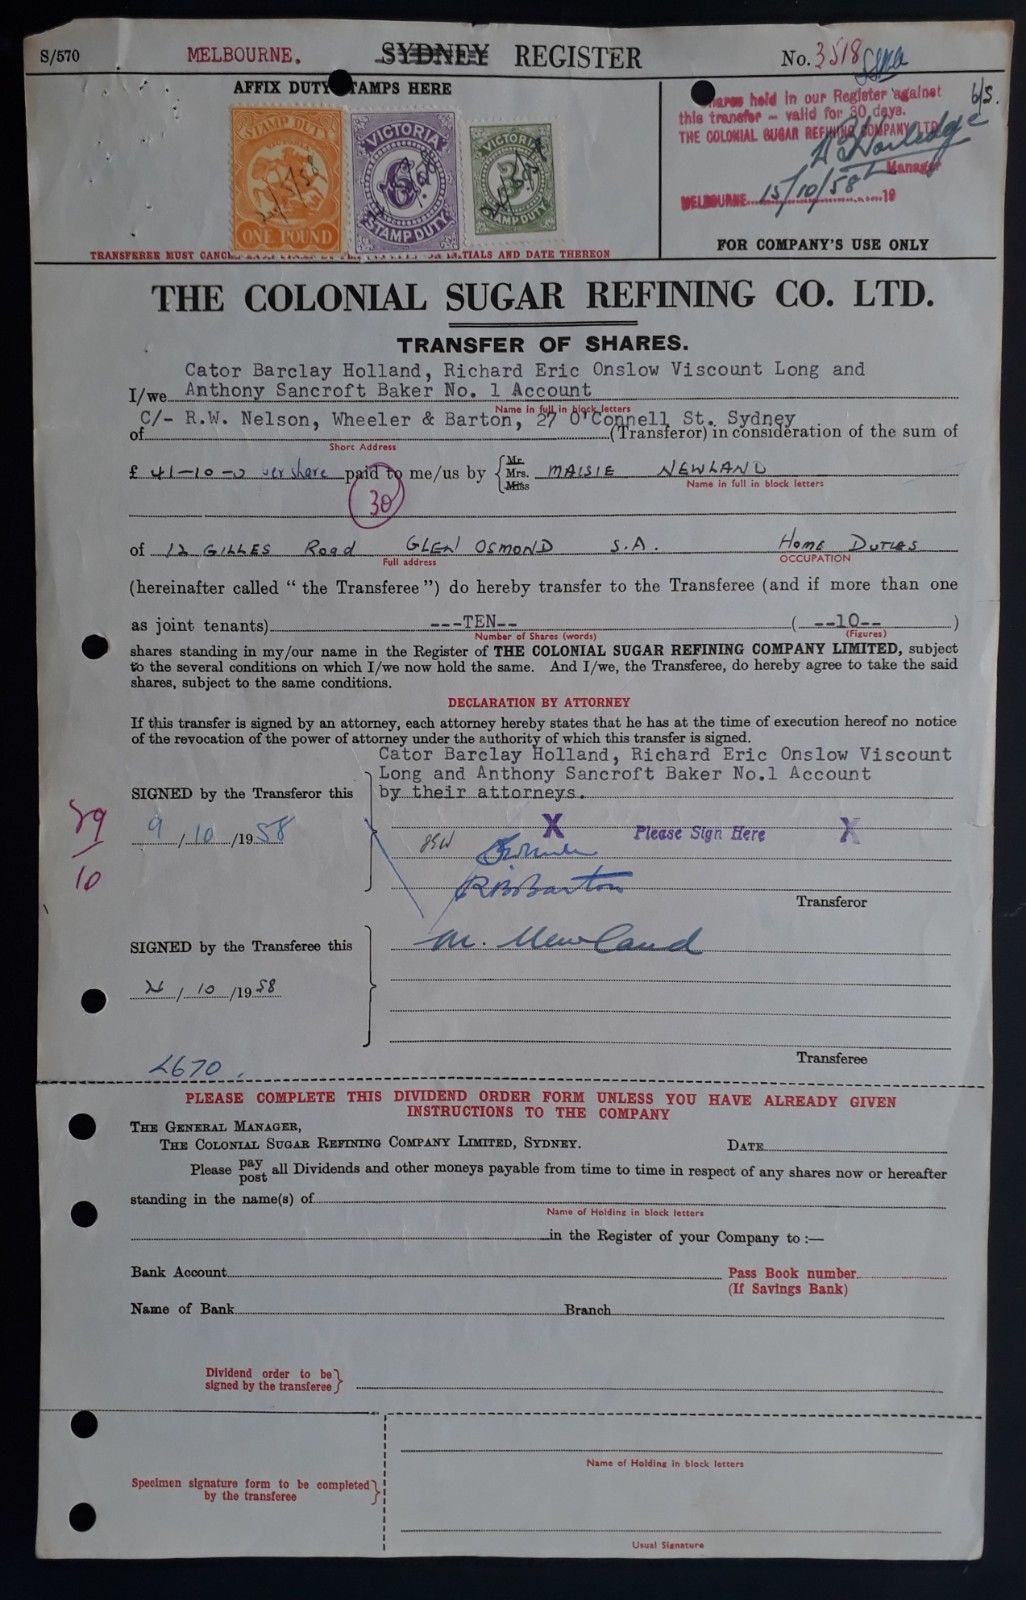 S/570 MELBOURNE. SYDNEY REGISTER No. 3518
AFFIX DUTY STAMPS HERE
STAMP DUTY
VICTORIA
ONE POUND
VICTORIA
6/-
STAMP DUTY
VICTORIA
STAMP DUTY
Shares held in our Register against
this transfer – valid for 30 days.
THE COLONIAL SUGAR REFINING COMPANY LTD.
Manager
MELBOURNE 15/10/58 19
TRANSFEREE MUST CANCEL INITIALS AND DATE THEREON
FOR COMPANY'S USE ONLY
THE COLONIAL SUGAR REFINING CO. LTD.
TRANSFER OF SHARES.
Cator Barclay Holland, Richard Eric Onslow Viscount Long and
I/we Anthony Sancroft Baker No. 1 Account
Name in full in block letters
C/- R.W. Nelson, Wheeler & Barton, 27 O'Connell St. Sydney
of (Transferor) in consideration of the sum of
Short Address
£ 41-10-0 per share paid to me/us by { Mr. Mrs. Miss MAISIE NEWLAND
Name in full in block letters
30
of 12 GILLES Road GLEN OSMOND S.A. Home Duties
Full address OCCUPATION
(hereinafter called "the Transferee") do hereby transfer to the Transferee (and if more than one
as joint tenants) ---TEN-- ( --10-- )
Number of Shares (words) (Figures)
shares standing in my/our name in the Register of THE COLONIAL SUGAR REFINING COMPANY LIMITED, subject
to the several conditions on which I/we now hold the same. And I/we, the Transferee, do hereby agree to take the said
shares, subject to the same conditions.
DECLARATION BY ATTORNEY
If this transfer is signed by an attorney, each attorney hereby states that he has at the time of execution hereof no notice
of the revocation of the power of attorney under the authority of which this transfer is signed.
Cator Barclay Holland, Richard Eric Onslow Viscount
Long and Anthony Sancroft Baker No.1 Account
SIGNED by the Transferor this by their attorneys.
29/10
9/10/1958 X Please Sign Here X
R.B. Barton
Transferor
SIGNED by the Transferee this M. Newland
/10/1958
Transferee
L670.
PLEASE COMPLETE THIS DIVIDEND ORDER FORM UNLESS YOU HAVE ALREADY GIVEN
INSTRUCTIONS TO THE COMPANY
THE GENERAL MANAGER,
THE COLONIAL SUGAR REFINING COMPANY LIMITED, SYDNEY. DATE
Please pay post all Dividends and other moneys payable from time to time in respect of any shares now or hereafter
standing in the name(s) of
Name of Holding in block letters
in the Register of your Company to :—
Bank Account Pass Book number
(If Savings Bank)
Name of Bank Branch
Dividend order to be
signed by the transferee
Name of Holding in block letters
Specimen signature form to be completed
by the transferee
Usual Signature